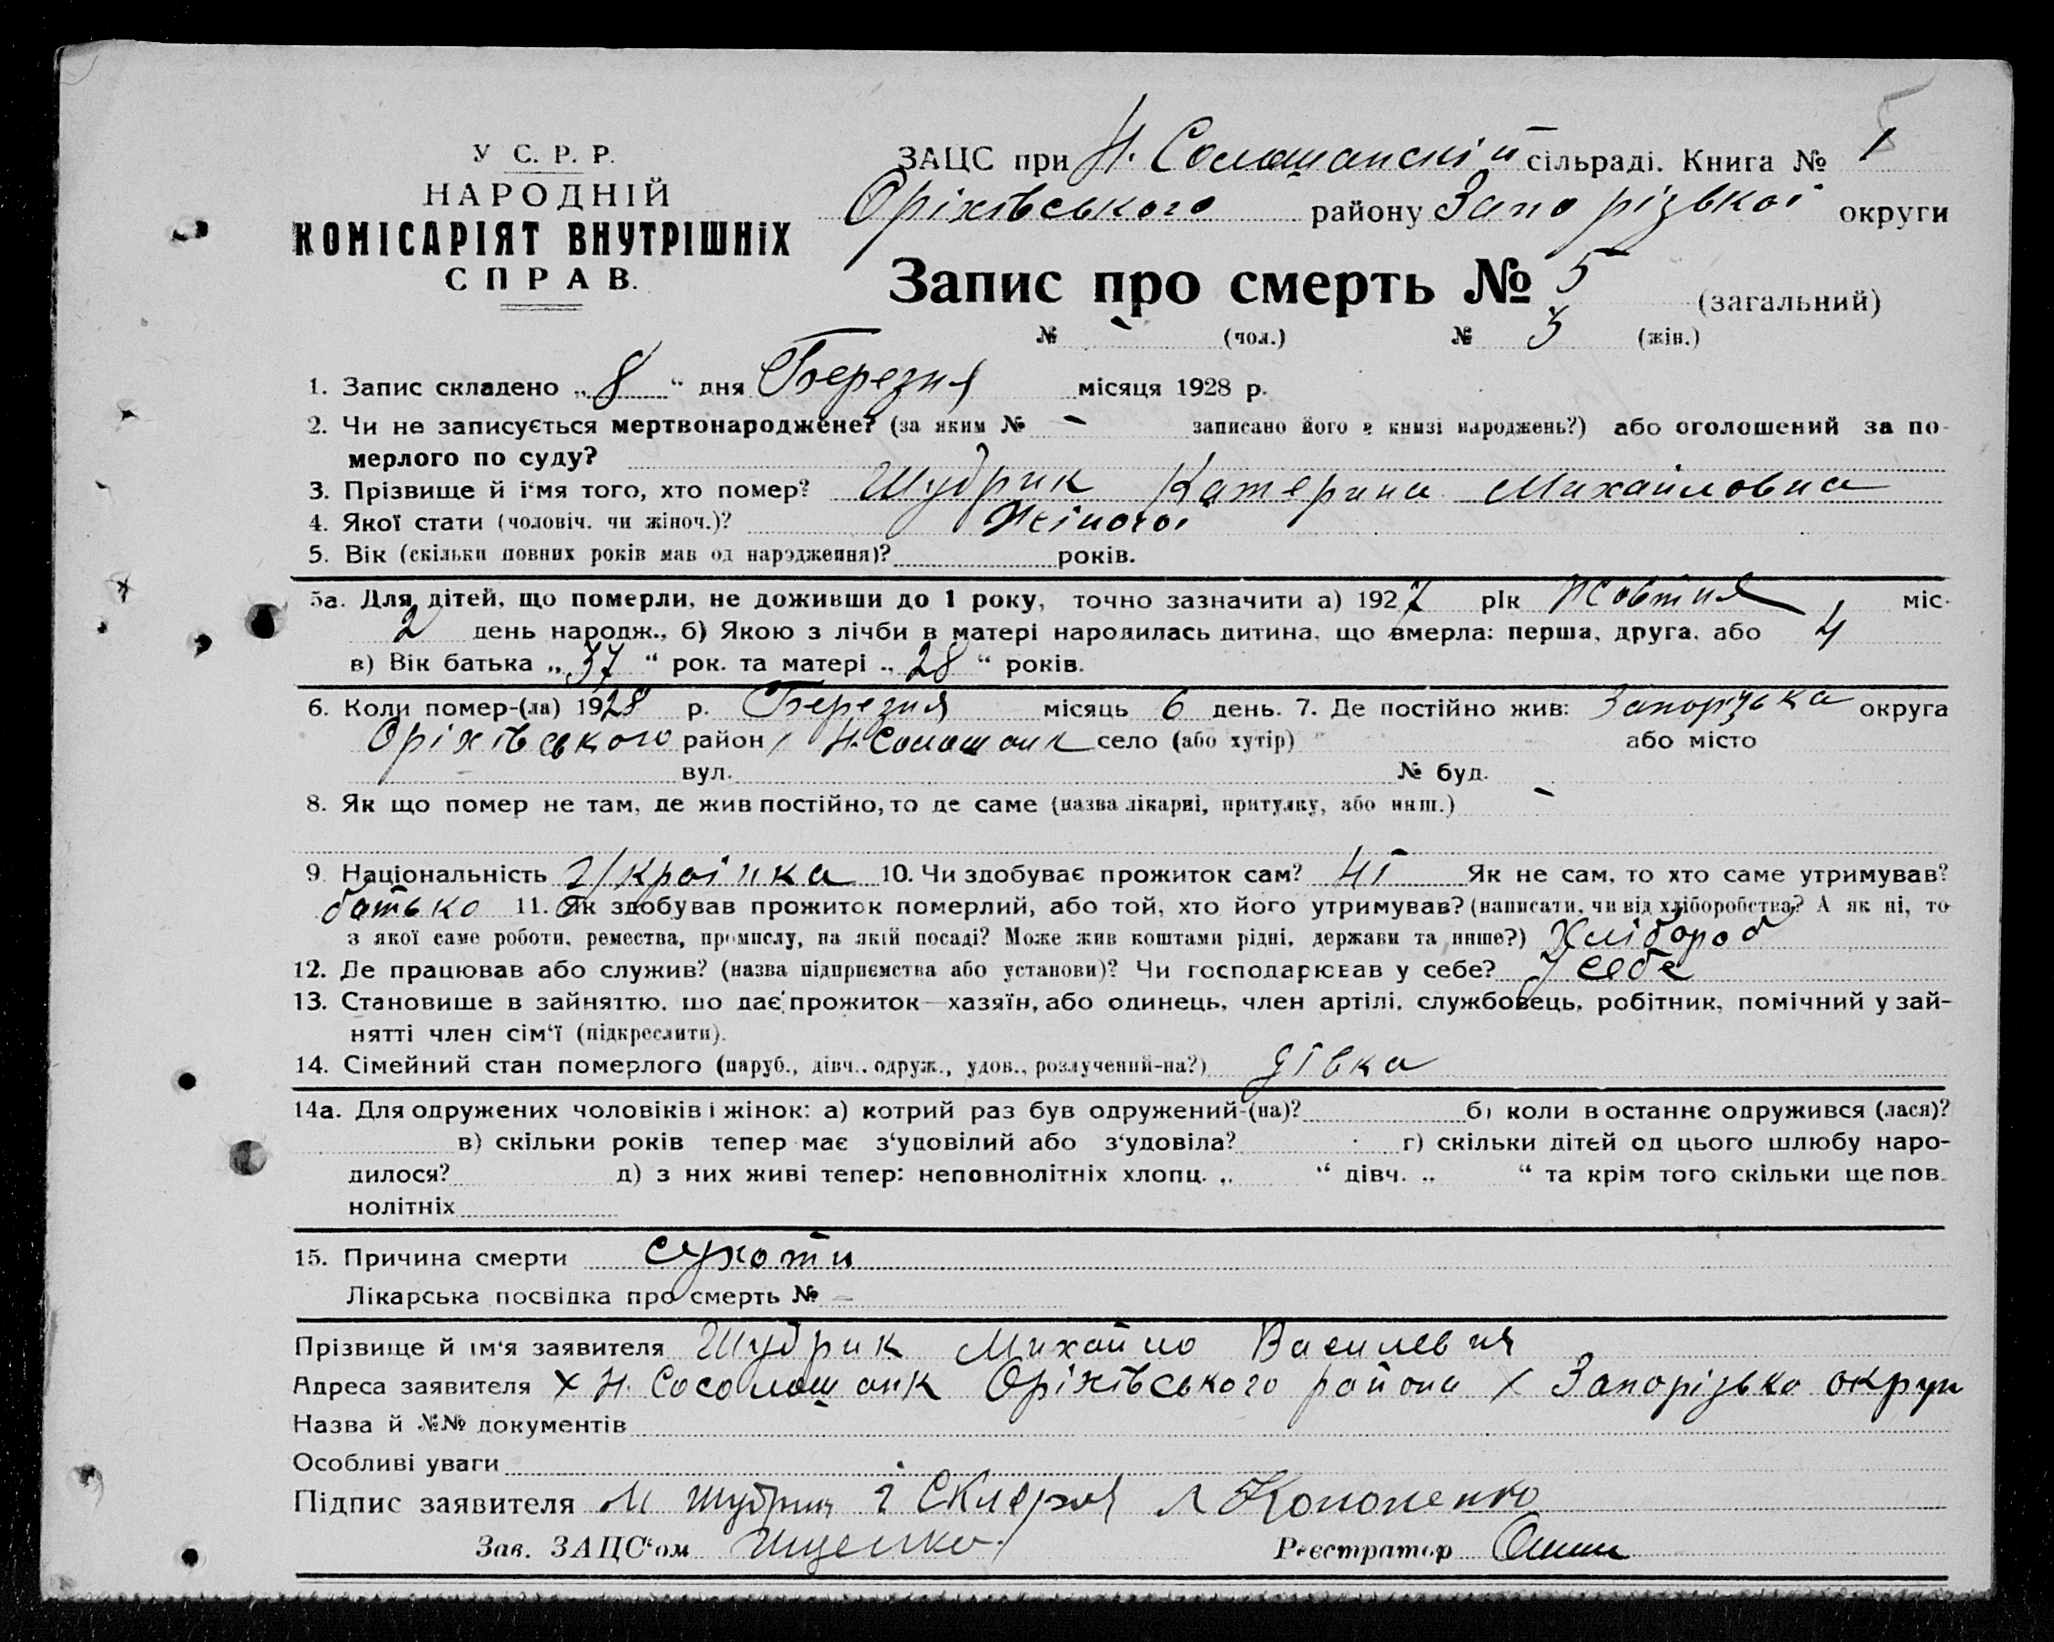 5
У С. Р. Р.
НАРОДНІЙ
КОМІСАРІЯТ ВНУТРІШНІХ
СПРАВ.
ЗАЦС при Н. Солошанській сільраді. Книга № 1
Оріхівського району Запорізької округи
Запис про смерть № 5 (загальний)
№ - (чол.) № 3 (жін.)
1. Запис складено „ 8 “ дня Березня місяця 1928 р.
2. Чи не записується мертвонароджене? (за яким № - записано його в книзі народжень?) або оголошений за по-
мерлого по суду?
3. Прізвище й ім'я того, хто помер? Шудрик Катерина Михайловна
4. Якої стати (чоловіч. чи жіноч.)? Жіночої
5. Вік (скільки повних років мав од народження)? років.
5а. Для дітей, що померли, не доживши до 1 року, точно зазначити а) 1927 рік Жовтня міс.
2 день народж., б) Якою з лічби в матері народилась дитина, що вмерла: перша, друга, або 4
в) Вік батька „ 37 “ рок. та матері „ 28 “ років.
6. Коли помер-(ла) 1928 р. Березня місяць 6 день. 7. Де постійно жив: Запорізька округа
Оріхівського район Н. Солошан село (або хутір) або місто
вул. № буд.
8. Як що помер не там, де жив постійно, то де саме (назва лікарні, притулку, або инш.) -
9. Національність Українка 10. Чи здобуває прожиток сам? Ні Як не сам, то хто саме утримував?
батько 11. Як здобував прожиток померлий, або той, хто його утримував? (написати, чи від хліборобства? А як ні, то
з якої саме роботи, ремества, промислу, на якій посаді? Може жив коштами рідні, держави та инше?) Хлібороб
12. Де працював або служив? (назва підприємства або установи)? Чи господарював у себе? У себе
13. Становише в зайняттю, що дає прожиток—хазяїн, або одинець, член артілі, службовець, робітник, помічний у зай-
нятті член сім'ї (підкреслити).
14. Сімейний стан померлого (паруб., дівч., одруж., удов., розлучений-на?) дівка
14а. Для одружених чоловіків і жінок: а) котрий раз був одружений-(на)? б) коли в останнє одружився (лася)?
в) скільки років тепер має з'удовілий або з'удовіла? г) скільки дітей од цього шлюбу наро-
дилося? д) з них живі тепер: неповнолітніх хлопц. „ “ дівч. „ “ та крім того скільки ще пов-
нолітніх
15. Причина смерти сухоти
Лікарська посвідка про смерть № -
Прізвище й ім'я заявителя Шудрик Михайло
Адреса заявителя х Н. Оріхівського района х Запорізько округи
Назва й №№ документів
Особливі уваги
Підпис заявителя М Шудрик Кононенко
Зав. ЗАЦС'ом Ищенко Реєстратор